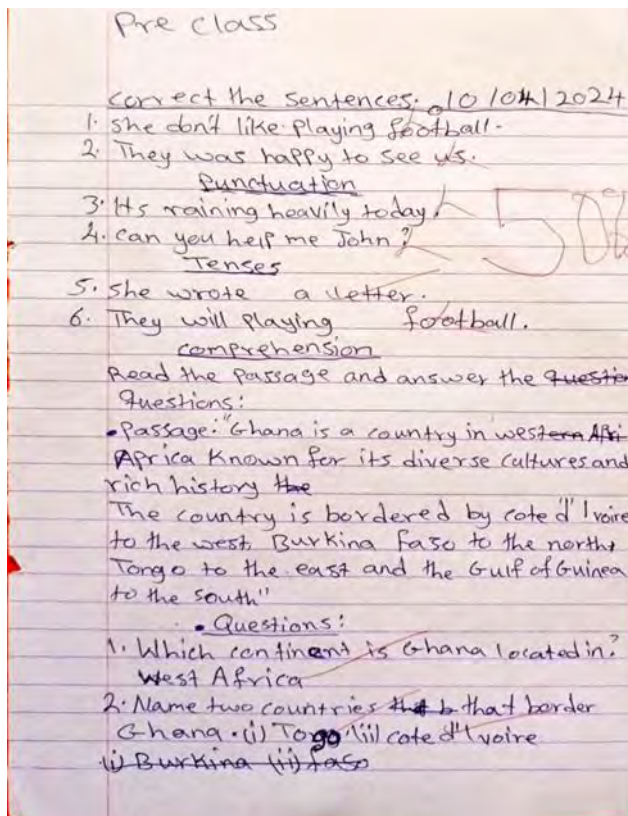 Pre class
correct the sentences. 10/04/2024
1. she don't like playing football.
2. They was happy to see us.
Punctuation
3. Its raining heavily today.
4. can you help me John?
Tenses
5. she wrote a letter.
6. They will playing football.
comprehension
Read the passage and answer the questio
questions:
• Passage: "Ghana is a country in western Afri
Africa known for its diverse cultures and
rich history the
The country is bordered by cote d'Ivoire
to the west, Burkina faso to the north,
Tongo to the east and the Gulf of Guinea
to the south"
• Questions:
1. Which continent is Ghana located in?
West Africa
2. Name two countries that b that border
Ghana. (i) Torgo (ii) cote d'Ivoire
(i) Burkina (ii) faso